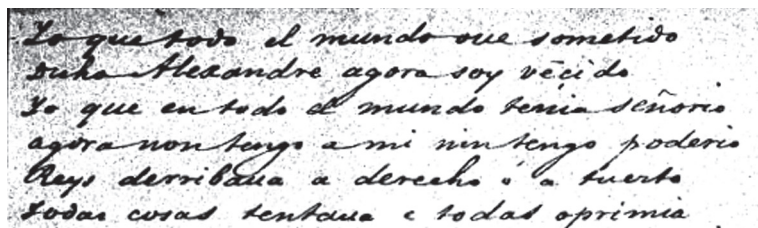 Yo que todo el mundo oue sometido
Dicho Alexandre agora soy vēcido
Yo que en todo el mundo tenia señorio
agora non tengo a mi nin tengo poderio
Reys derribaua a derecho ó a tuerto
todas cosas tentaua e todas oprimia